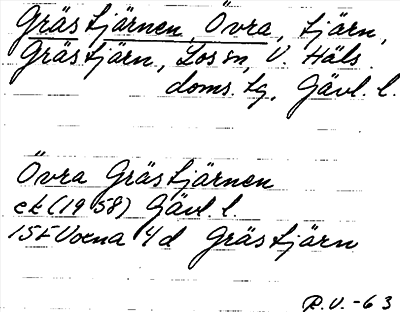 Grästjärnen, Övra, tjärn,
Grästjärn, Los sn, V. Häls.
doms. tg, Gävl. l.
Övra Grästjärnen
ek (1958) Gävl. l.
15F Voxna 4d Grästjärn
R.V. -63